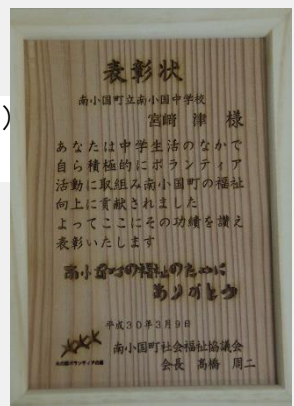 )
表彰状
南小国町立南小国中学校
宮﨑 津 様
あなたは中学生活のなかで
自ら積極的にボランティア
活動に取組み南小国町の福祉
向上に貢献されました
よってここにその功績を讃え
表彰いたします
南小国町の福祉のために
ありがとう
平成30年3月9日
南小国町社会福祉協議会
会長 髙橋 周二